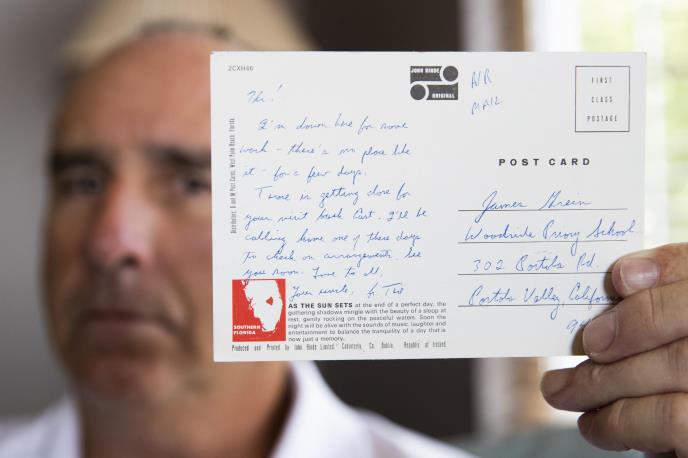 2CXH46
JOHN HINDE
ORIGINAL
AIR
MAIL
FIRST
CLASS
POSTAGE
Distributors, D and M Post Cards, West Palm Beach, Florida.
Hi!
I'm down here for some
work - there's no place like
it - for a few days.
Time is getting close for
your visit back East. I'll be
calling home one of these days
to check on arrangements. See
you soon. Love to all,
Your uncle,
POST CARD
James
Woodside Priory School
302 Portola Rd.
Portola Valley, California
SOUTHERN
FLORIDA
AS THE SUN SETS at the end of a perfect day, the
gathering shadows mingle with the beauty of a sloop at
rest, gently rocking on the peaceful waters. Soon the
night will be alive with the sounds of music, laughter and
entertainment to balance the tranquility of a day that is
now just a memory.
Produced and Printed by John Hinde Limited, Cabinteely, Co. Dublin, Republic of Ireland.